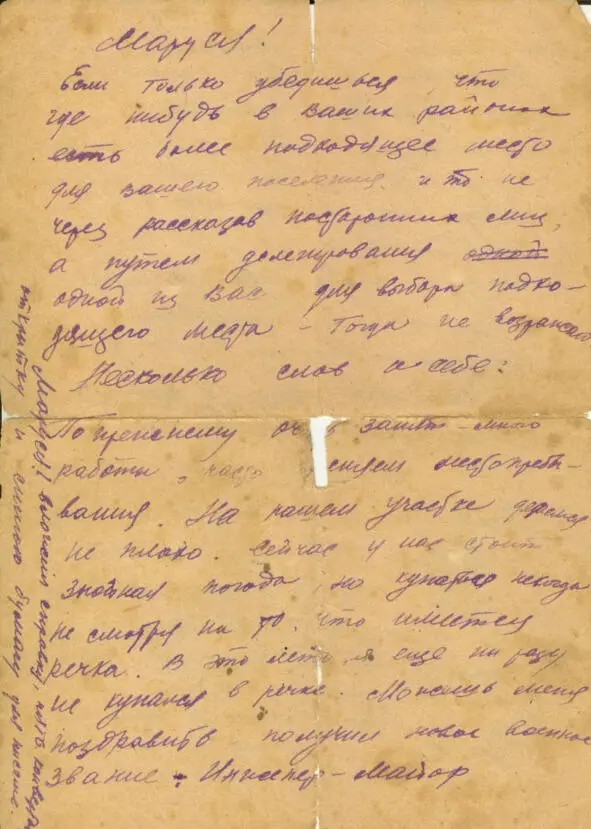 Маруся!
Если только убедишься, что
где нибудь в ваших районах
есть более подходящее место
для вашего поселения и то не
через рассказов посторонних лиц,
а путем делегирования одной
одной из Вас для выбора подхо-
дящего места - тогда не возражаю
Несколько слов о себе:
По прежнему оч занят - много
работы, часто меняем местопребы-
вания. На нашем участке деремся
не плохо. Сейчас у нас стоит
знойная погода, но купаться некогда
не смотря на то, что имеется
речка. В это лето я еще ни разу
не купался в речке. Можешь меня
поздравить получил новое военное
звание. Инженер-Майор
Маруся! Высылаю справку, пять конверта
открытку и синюю бумагу для письма.